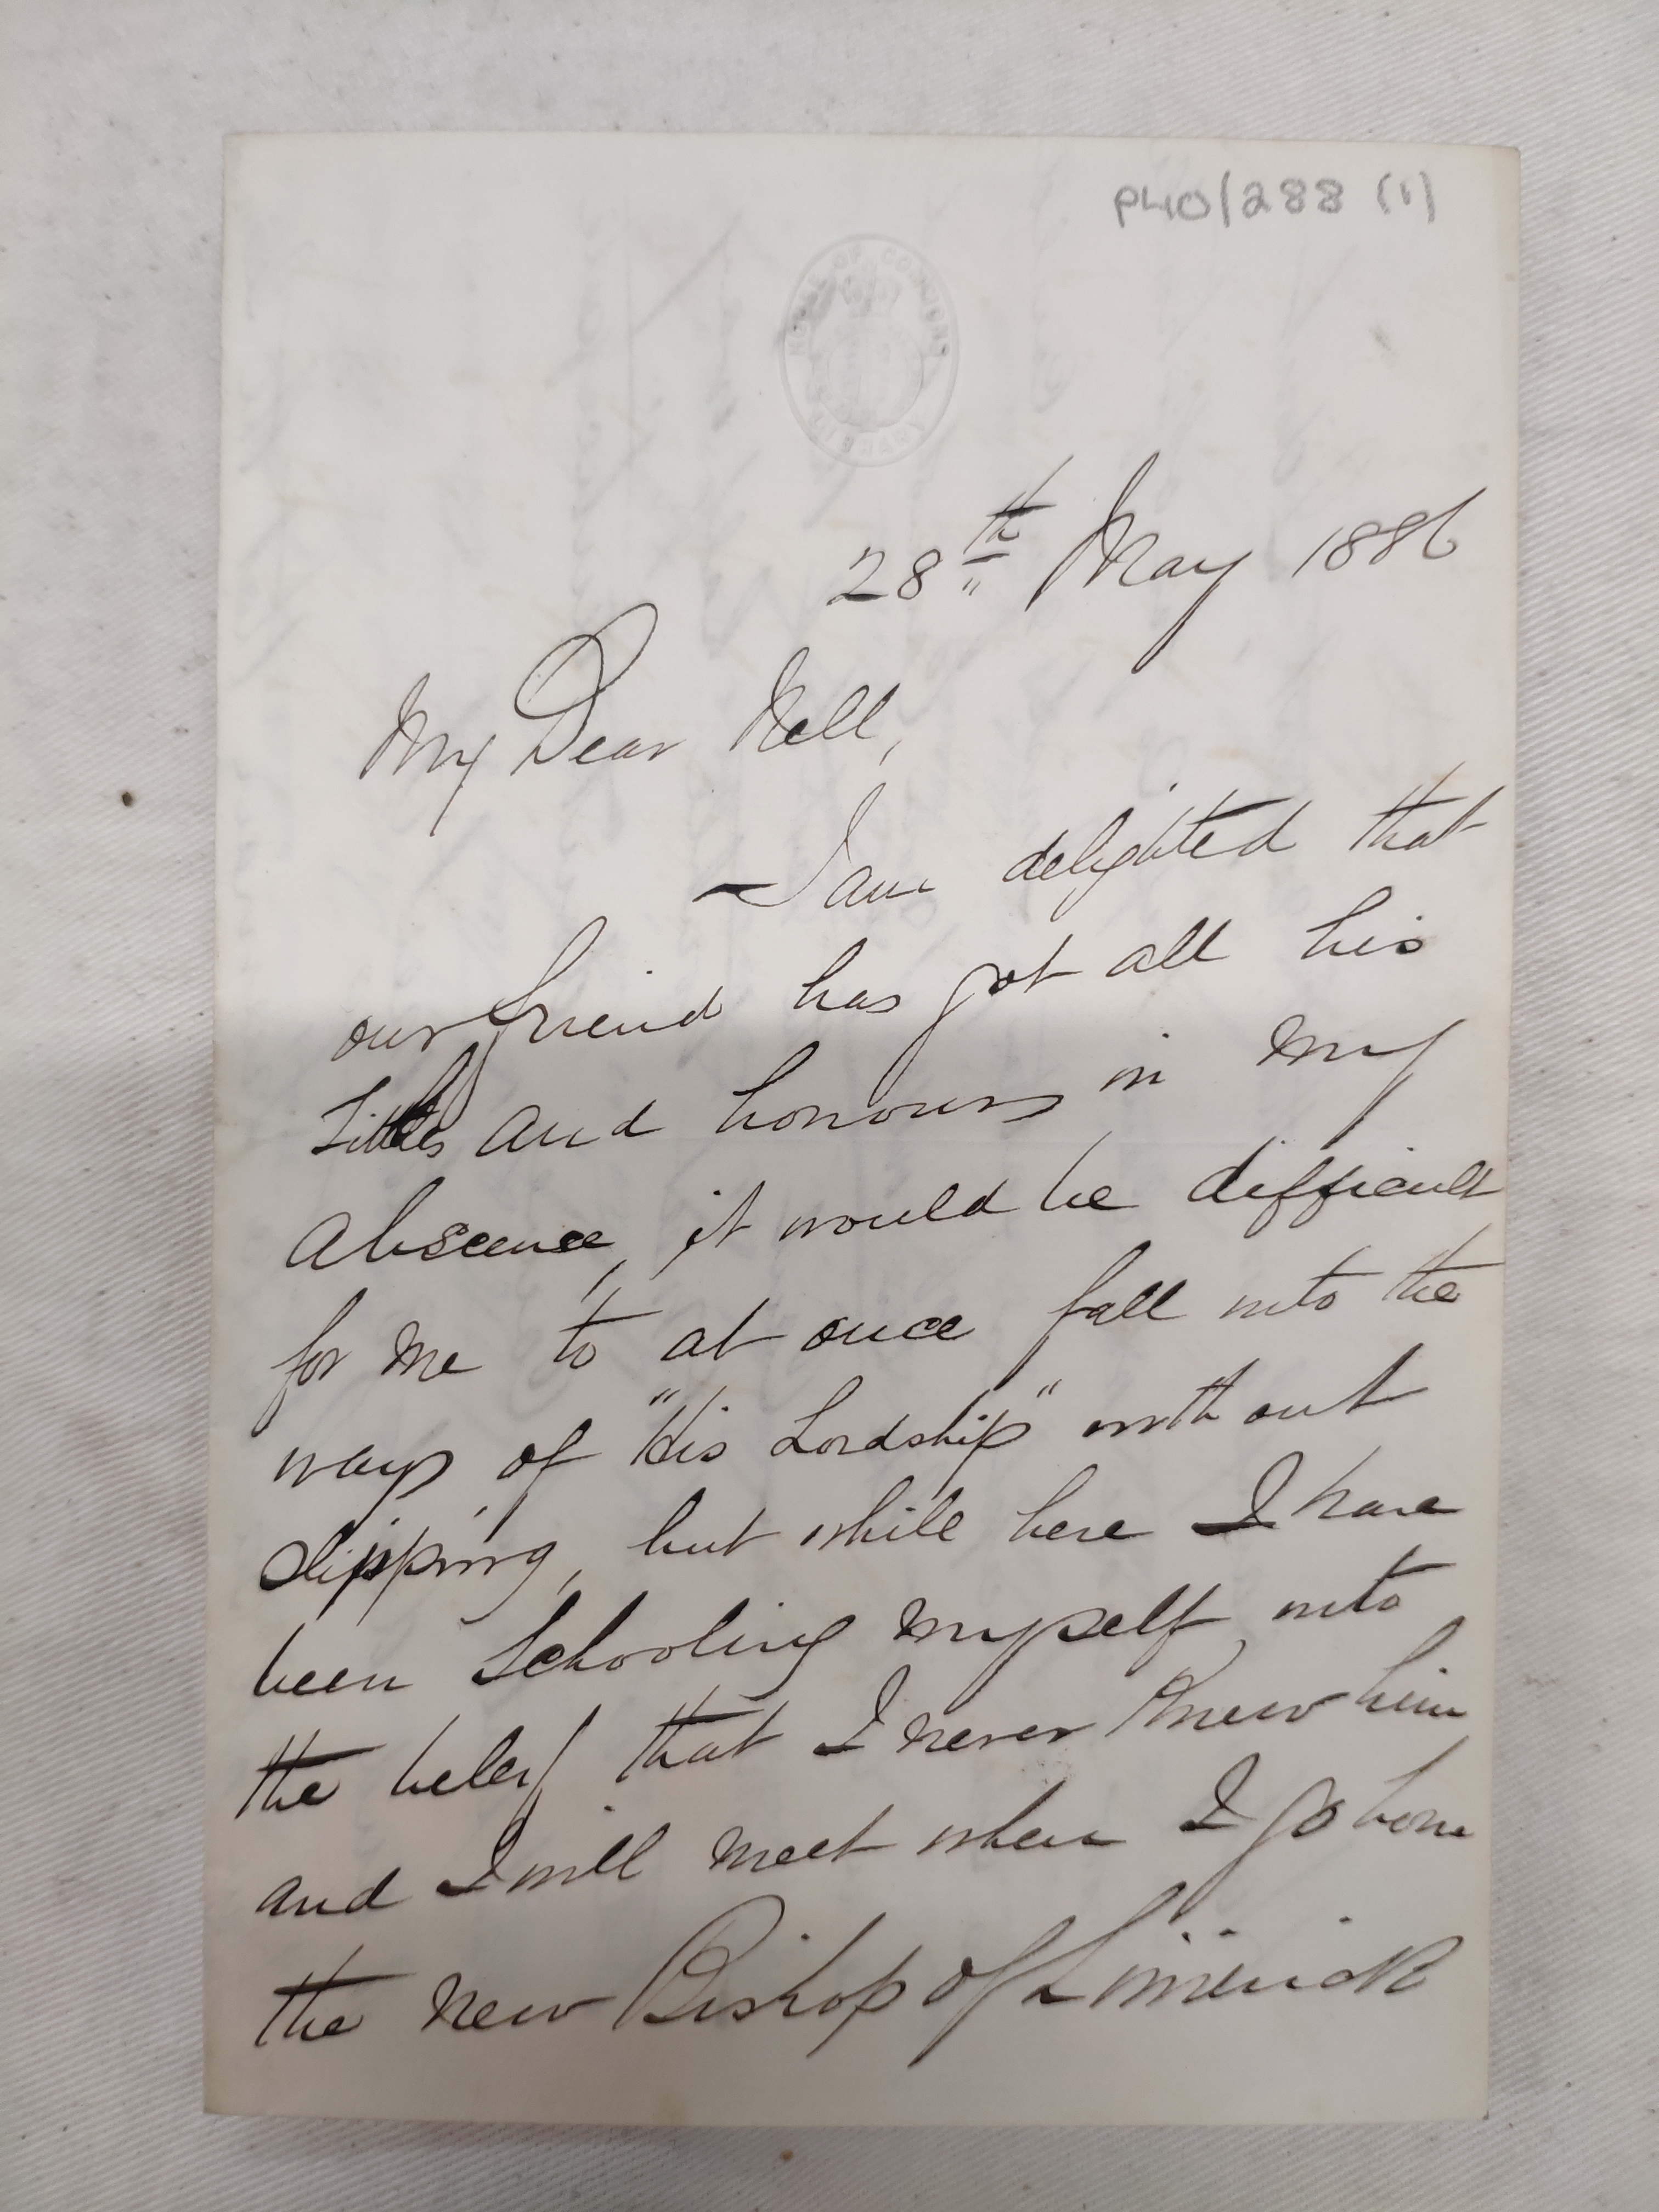 P40/288 (1)
HOUSE OF COMMONS LIBRARY
28th May 1886
My Dear Nell,
I am delighted that
our friend has got all his
Titles and honours in my
Abscence, it would be difficult
for me to at once fall into the
ways of "His Lordship" without
slipping, but while here I have
been schooling myself into
the beleif that I never knew him
and I will meet when I go home
the new Bishop of Limerick